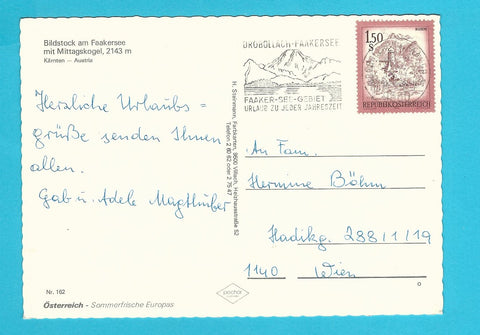 Bildstock am Faakersee
mit Mittagskogel, 2143 m
Kärnten – Austria
Herzliche Urlaubs=
grüße senden Ihnen
allen.
Gab u. Adele
Nr. 162
Österreich - Sommerfrische Europas
H. Steinmann, Farbkarten, 9500 Villach,
Telefon
DROBOLLACH-FAAKERSEE
FAAKER-SEE-GEBIET
URLAUB ZU JEDER JAHRESZEIT
1.50
S
REPUBLIK ÖSTERREICH
An Fam.
Hermine Böhm
Hadikg. 288/1/19
1140 Wien